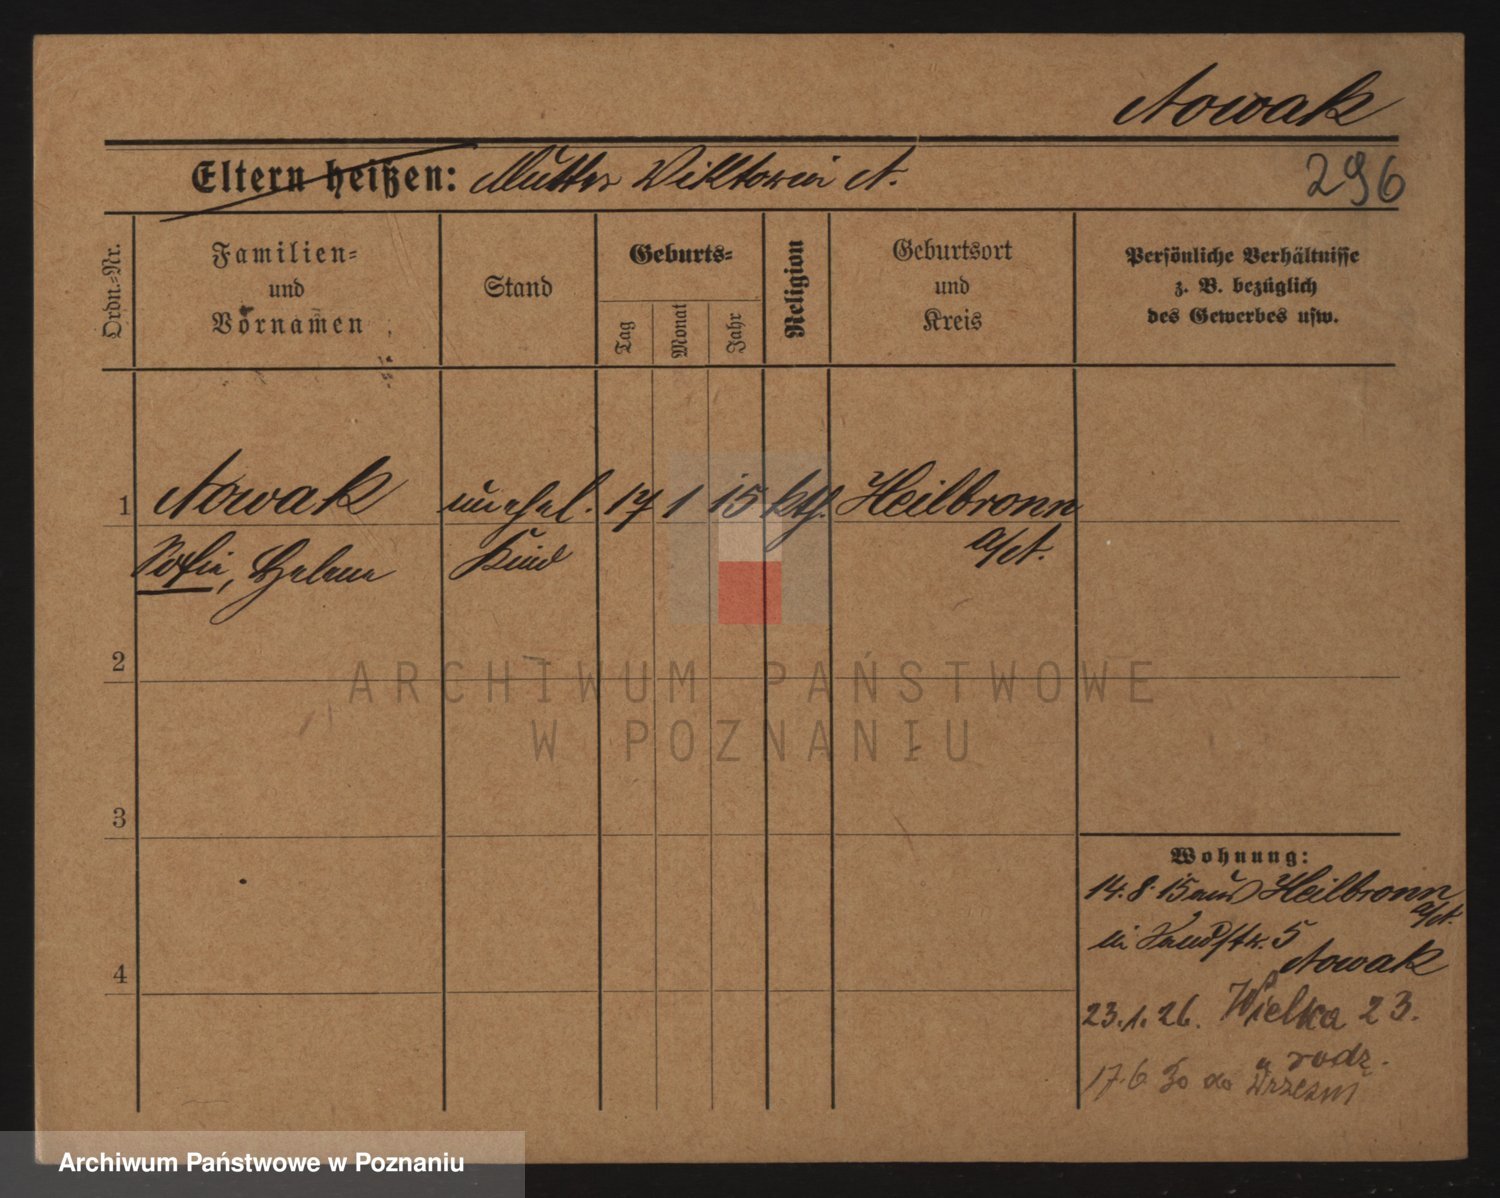 Nowak
Eltern heißen: Mutter Wiktoria N.
296
Ordn.-Nr.
Familien-
und
Vornamen
Stand
Geburts-
Tag
Monat
Jahr
Religion
Geburtsort
und
Kreis
Persönliche Verhältnisse
z. B. bezüglich
des Gewerbes usw.
1 Nowak unehel. 17 1 15 kth. Heilbronn
Sofie, Helene Kind a/N.
2
3
4
Wohnung:
14. 8. 15 aus Heilbronn
a/N.
5
Nowak
23.1.26. Wielka 23.
u rodz.
17.6. 30 do Wrześni
ARCHIWUM PAŃSTWOWE
W POZNANIU
Archiwum Państwowe w Poznaniu